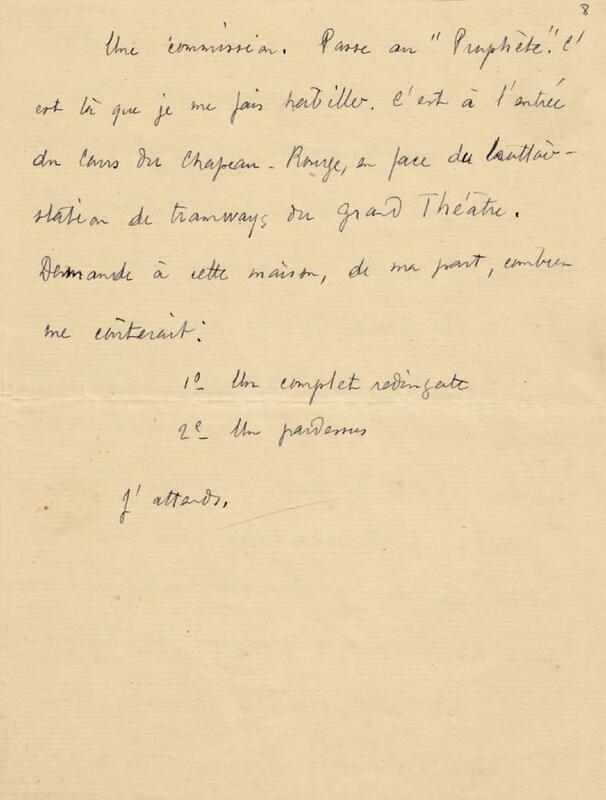 8
Une commission. Passe au "Prophète". C'
est là que je me fais habiller. C'est à l'entrée
du Cours du Chapeau-Rouge, en face de
station de tramways du Grand Théâtre.
Demande à cette maison, de ma part, combien
me coûterait:
1º Un complet redingote
2e Un pardessus
J'attends.